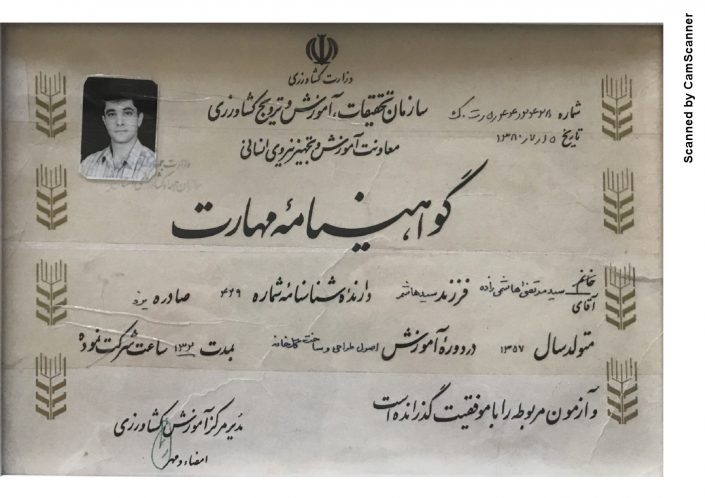 وزارت کشاورزی
سازمان تحقیقات، آموزش و ترویج کشاورزی
معاونت آموزش و تجهیز نیروی انسانی
شماره
تاریخ
گواهینامهٔ مهارت
خانم
آقای
سید مرتضی هاشمی زاده فرزند سید هاشم دارندهٔ شناسنامهٔ شماره ۴۶۹ صادره یزد
متولد سال ۱۳۵۷ در دورهٔ آموزش اصول طراحی و ساخت گلخانه بمدت ۱۳۲ ساعت شرکت نموده
و آزمون مربوطه را با موفقیت گذرانده است
مدیر مرکز آموزش کشاورزی
امضاء و مهر
Scanned by CamScanner